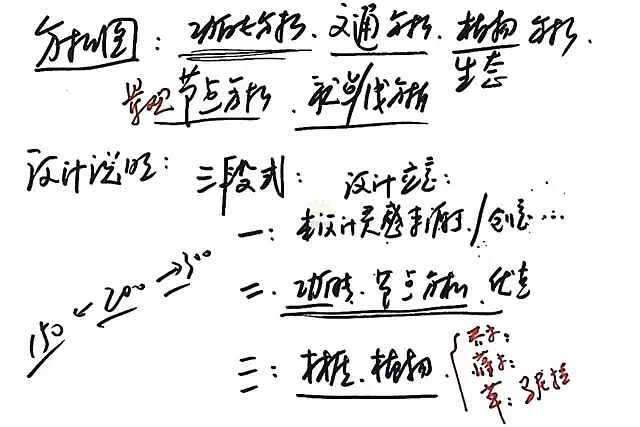 分析图：功能分析、交通分析、植物分析、
生态
景观节点分析、视点/线分析
设计说明：三段式：设计立意：
一：本设计灵感来源于/创意…
二、功能、节点分析、优点
三：材质、植物
乔木：
灌木：
草：马尼拉
150 ← 200 → 300